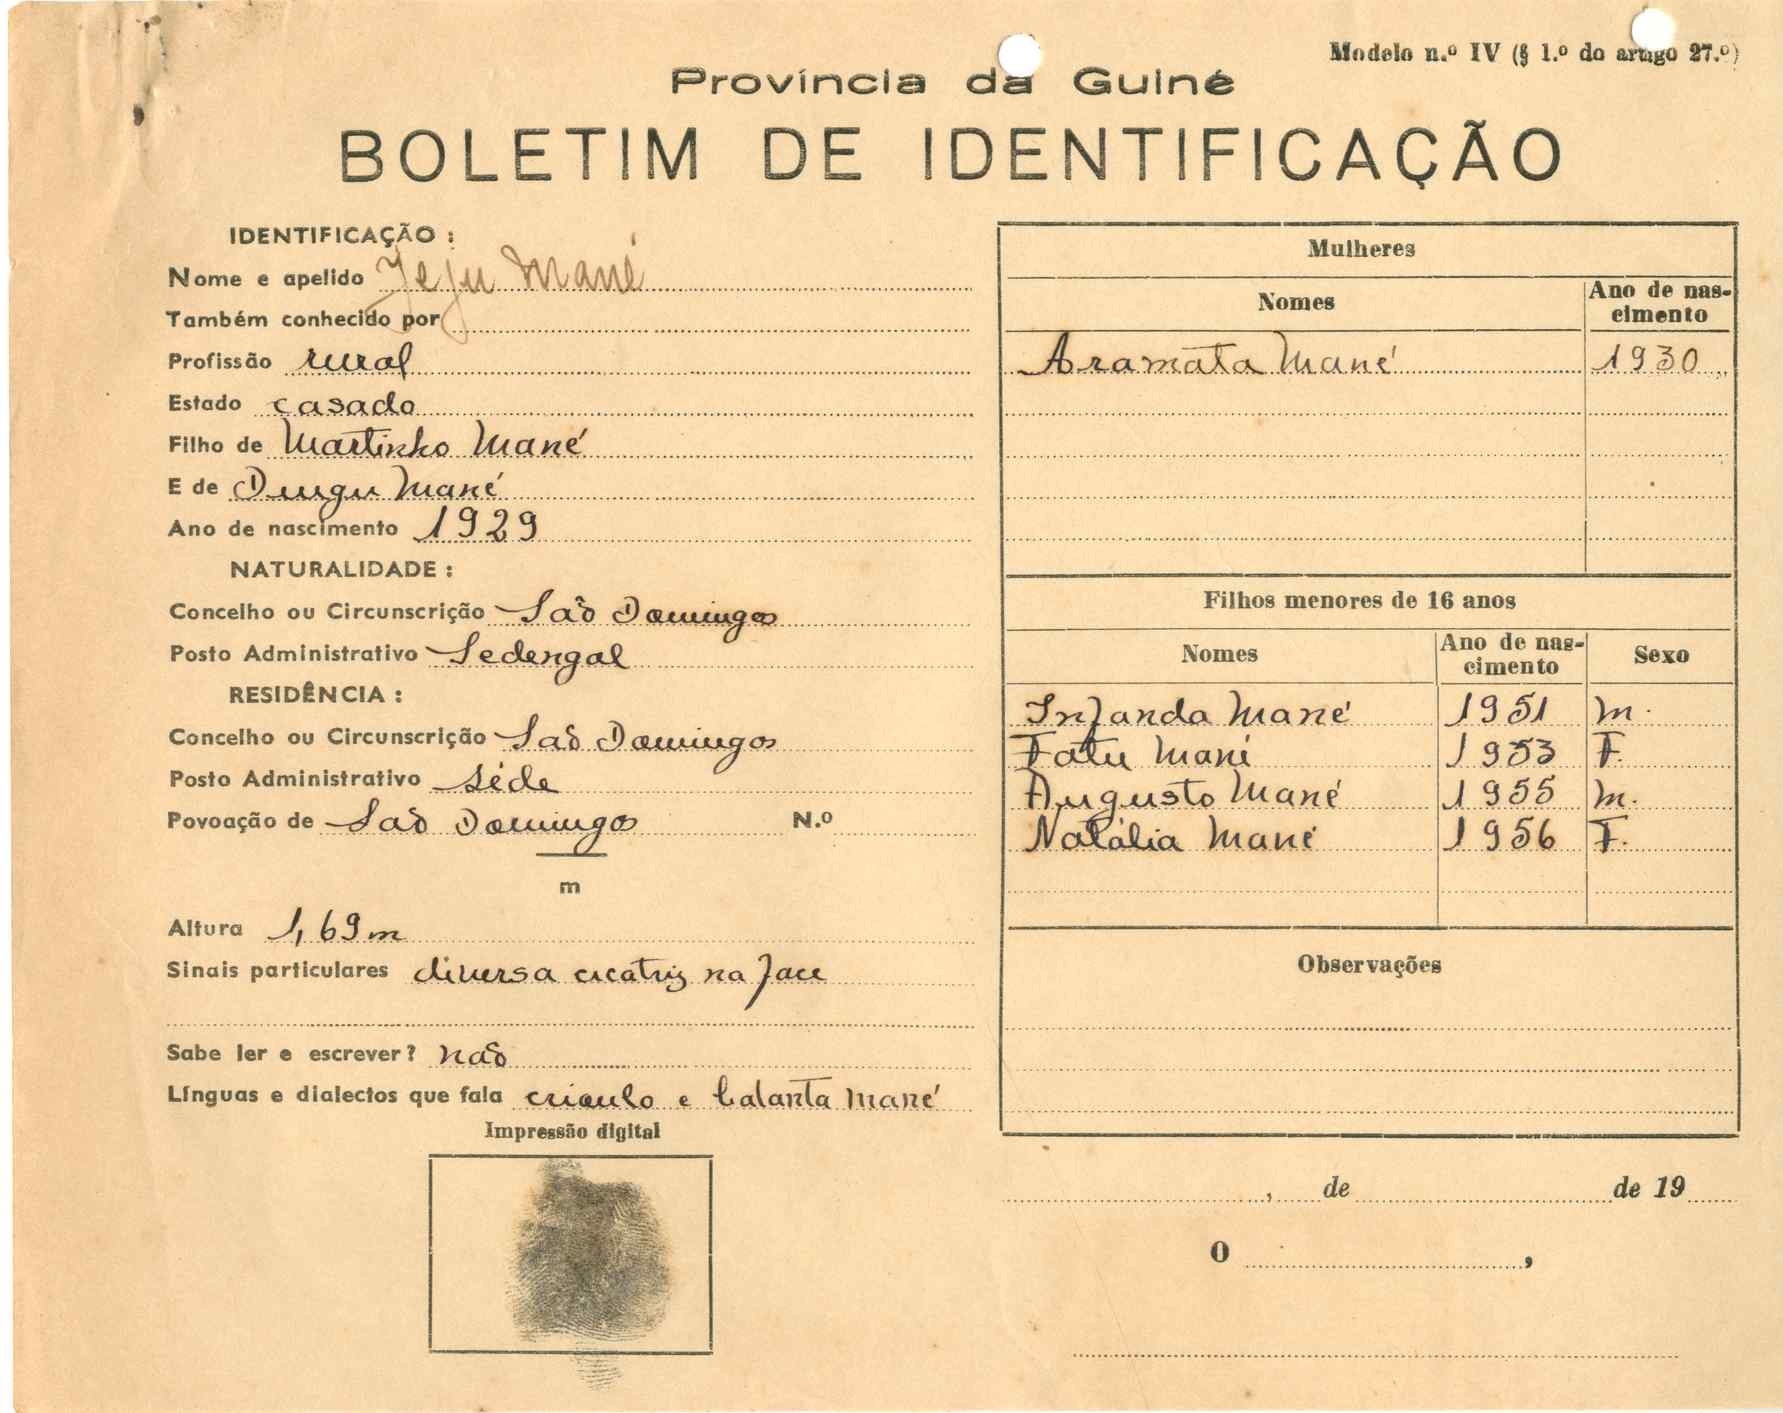 Modelo n.º IV (§ 1.º do artigo 27.º)
Província da Guiné
BOLETIM DE IDENTIFICAÇÃO
IDENTIFICAÇÃO :
Nome e apelido Jeju Mané
Também conhecido por
Profissão rural
Estado casado
Filho de Martinho Mané
E de Dungu Mané
Ano de nascimento 1929
NATURALIDADE :
Concelho ou Circunscrição São Domingos
Posto Administrativo Sedengal
RESIDÊNCIA :
Concelho ou Circunscrição São Domingos
Posto Administrativo séde
Povoação de São Domingos N.º
m
Altura 1,69 m
Sinais particulares diversa cicatriz na face
Sabe ler e escrever? não
Línguas e dialectos que fala crioulo e balanta mané
Impressão digital
Mulheres
Nomes Ano de nas-
cimento
Aramata Mané 1930
Filhos menores de 16 anos
Nomes Ano de nas-
cimento Sexo
Infanda Mané 1951 m.
Fatu Mané 1953 F.
Augusto Mané 1955 m.
Natália Mané 1956 F.
Observações
, de de 19
O ,